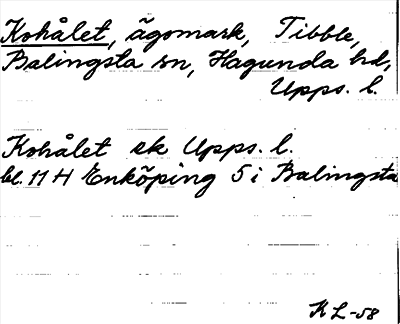 Kohålet, ägomark, Tibble,
Balingsta sn, Hagunda hd,
Upps. l.
Kohålet ek Upps. l.
bl. 11 H Enköping 5 i Balingsta
KL-58